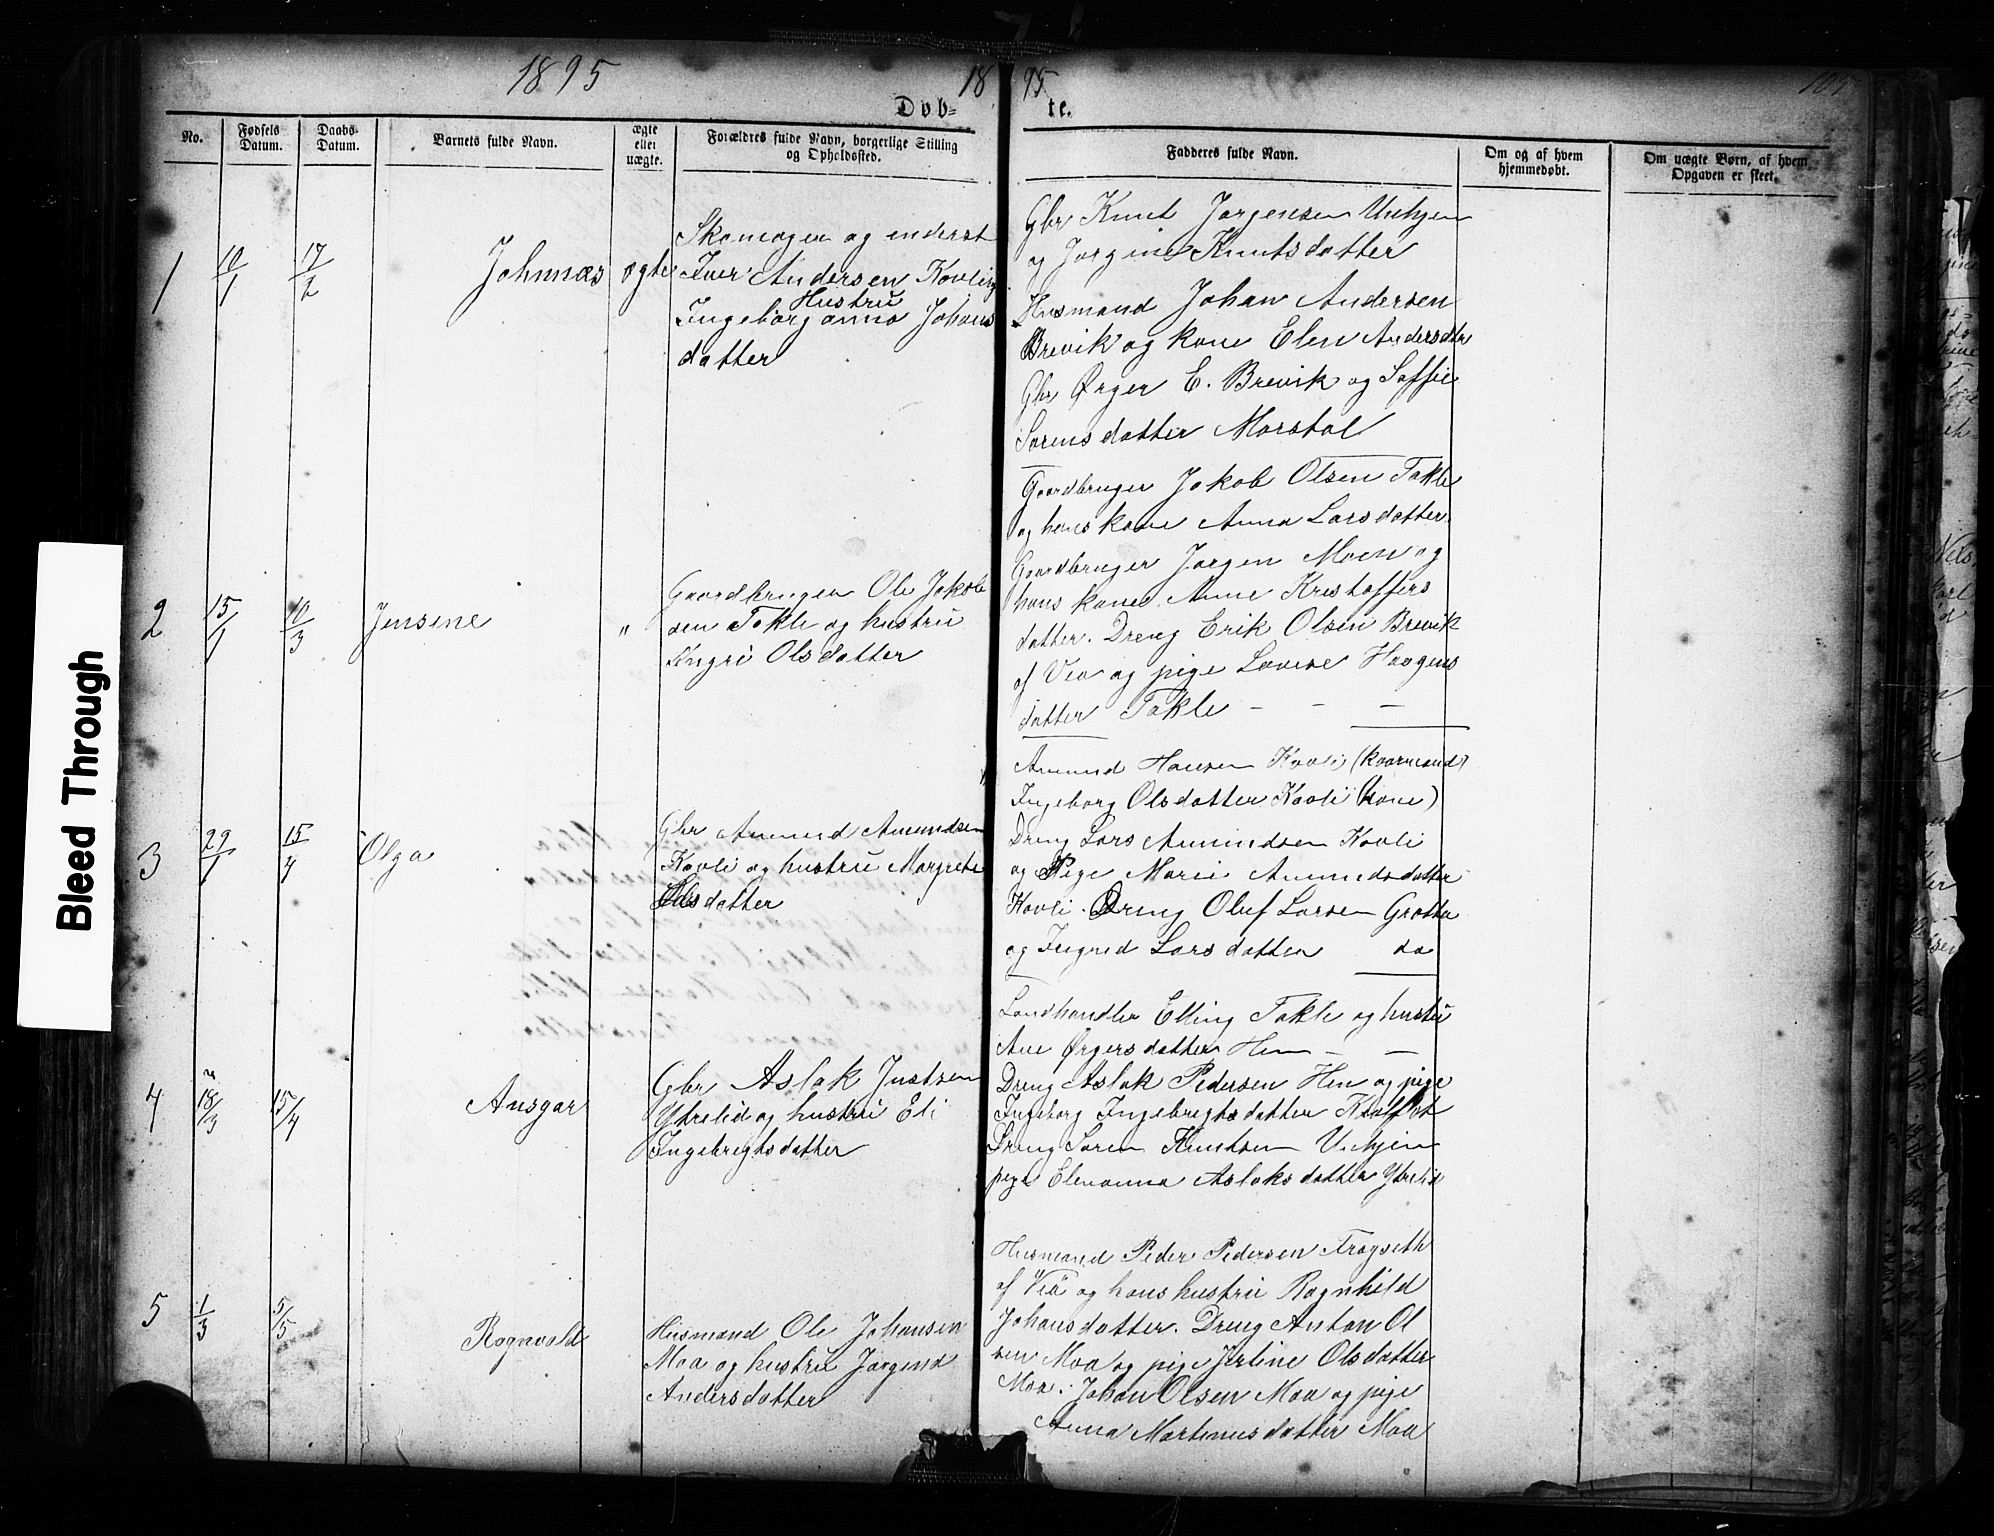 1895
1895
105
Døb=
te.
No.
Fødsels Datum.
Daabs Datum.
Barnets fulde Navn.
ægte eller uægte.
Forældres fulde Navn, borgerlige Stilling og Opholdssted.
Fadderes fulde Navn.
Om og af hvem hjemmedøbt.
Om uægte Børn, af hvem Opgaven er skeet.
1
10/1
17/2
Johannas
ægte
Skomager og enderst
Iver Andersen Kovling
Hustru
Ingeborganna Johans
datter
Gbr Knut Jørgensen
og Jørgine Knutsdatter
Husmand Johan Andersen
Brevik og kone Elen Andersdtr
Gbr Ørger E. Brevik og Soffie
Sørensdatter Morstøl
2
15/1
10/3
Jensine
"
Gaardbruger Ole Jakob
sen Takle og hustru
Ingri Olsdatter
Gaardbruger Jakob Olsen Takle
og hans kone Anna Larsdatter.
Gaardbruger Jørgen Moen og
hans kone Anne Kristoffers
datter. Dreng Erik Olsen Brevik
af Via og pige Lovise Haagens
datter Takle - - -
3
29/1
15/4
Olga
Gbr Amund Amundsen
Kovli og hustru Margrete
Olsdatter
Amund Hansen Kovli (kaarmand)
Ingeborg Olsdatter Kovli (kone)
Dreng Lars Amundsen Kovli
og Pige Marie Amundsdatter
Kovli. Dreng Oluf Larsen Grøtta
og Ingrid Larsdatter do
4
18/3
15/4
Ansgar
Gbr Aslak Justsen
Ytrelid og hustru Eli
Ingebregtsdatter
Landhandler Elling Takle og hustru
Ane Ørgersdatter Hen - -
Dreng Aslak Pedersen Hen og pige
Ingeborg Ingebregtsdatter
Dreng Søren Knutsen
pige Elenanna Aslaksdatter Ytrelid
5
1/3
5/5
Rognvald
Husmand Ole Johansen
Moa og hustru Jørgend
Andersdatter
Husmand Peder Pedersen Frøyseth
af Via og hans hustru Ragnhild
Johansdatter. Dreng Anton Ol
sen Moa og pige Jertine Olsdatter
Moa. Johan Olsen Moa og pige
Anna Martinusdatter Moa
Bleed Through